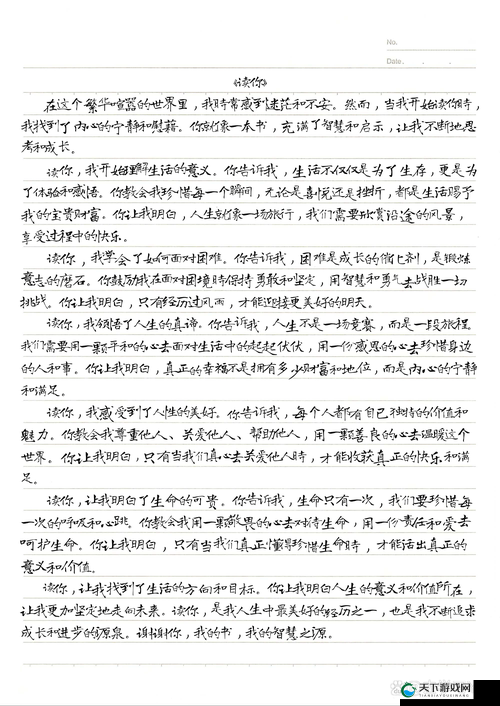 No.
Date.
《读你》
在这个繁华喧嚣的世界里，我时常感到迷茫和不安。然而，当我开始读你时，
我找到了内心的宁静和慰藉。你就像一本书，充满了智慧和启示，让我不断地思
考和成长。
读你，我开始理解生活的意义。你告诉我，生活不仅仅是为了生存，更是为
了体验和感悟。你教会我珍惜每一个瞬间，无论是喜悦还是挫折，都是生活赐予
我的宝贵财富。你让我明白，人生就像一场旅行，我们需要欣赏沿途的风景，
享受过程中的快乐。
读你，我学会了如何面对困难。你告诉我，困难是成长的催化剂，是锻炼
意志的磨石。你鼓励我在面对困境时保持勇敢和坚定，用智慧和勇气去战胜一切
挑战。你让我明白，只有经历过风雨，才能迎接更美好的明天。
读你，我领悟了人生的真谛。你告诉我，人生不是一场竞赛，而是一段旅程。
我们需要用一颗平和的心去面对生活中的起起伏伏，用一份感恩的心去珍惜身边
的人和事。你让我明白，真正的幸福不是拥有多少财富和地位，而是内心的宁静
和满足。
读你，我感受到了人性的美好。你告诉我，每个人都有自己独特的价值和
魅力。你教会我尊重他人、关爱他人、帮助他人，用一颗善良的心去温暖这个
世界。你让我明白，只有当我们真心去关爱他人时，才能收获真正的快乐和满
足。
读你，让我明白了生命的可贵。你告诉我，生命只有一次，我们要珍惜每
一次的呼吸和心跳。你教会我用一颗敬畏的心去对待生命，用一份责任和爱去
呵护生命。你让我明白，只有当我们真正懂得珍惜生命时，才能活出真正的
意义和价值。
读你，让我找到了生活的方向和目标。你让我明白人生的意义和价值所在，
让我更加坚定地走向未来。读你，是我人生中最美好的经历之一，也是我不断追求
成长和进步的源泉。谢谢你，我的书，我的智慧之源。
天下游戏网